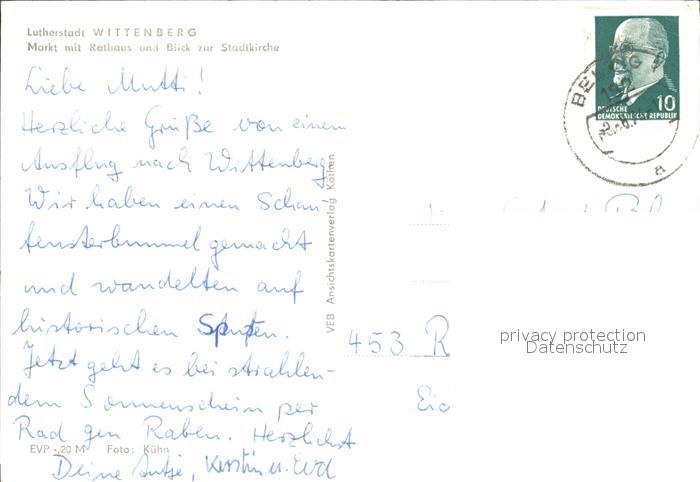 Lutherstadt WITTENBERG
Markt mit Rathaus und Blick zur Stadtkirche
Liebe Mutti!
Herzliche Grüße von einem
Ausflug nach Wittenberg.
Wir haben einen Schau-
fensterbummel gemacht
und wandelten auf
historischen Spuren.
Jetzt geht es bei strahlen-
dem Sonnenschein per
Rad gen Raben. Herzlichst
Deine Antje, Kerstin u. Evd
EVP -,20 M Foto: Kühn
VEB Ansichtskartenverlag Köthen
BELZIG
a
10
DEUTSCHE
DEMOKRATISCHE REPUBLIK
453 R
Eic
privacy protection
Datenschutz